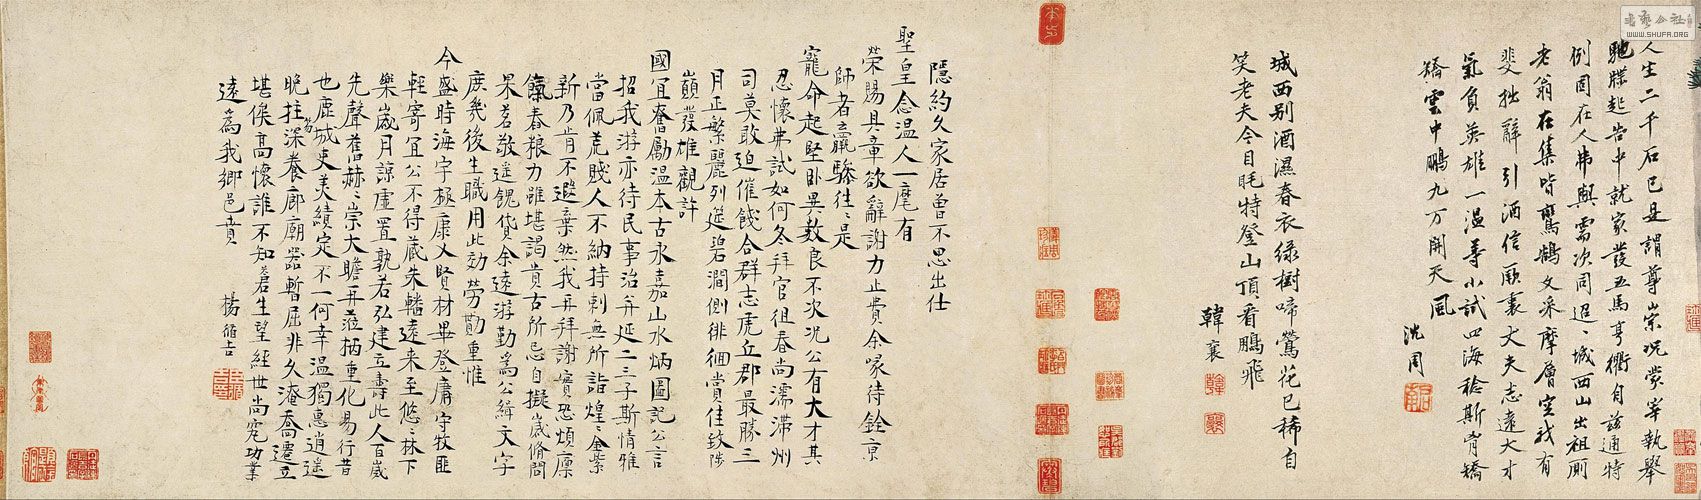 人生二千石已是謂尊崇況蒙宰執舉
馳牒起告中就家發五馬亨衢自茲通特
例固在人弗與需次同迢迢城西山出祖厠
老翁在集皆鸞鵠文采摩層空我有
斐拙辭引酒信厥裏丈夫志遠大才
氣負英雄一溫等小試四海稔斯肯矯
矯雲中鵬九万開天風
沈周
城西別酒濕春衣綠樹啼鶯花已稀自
笑老夫今目眊特登山頂看鵬飛
韓襄
隱約久家居曾不思出仕
聖皇念溫人一麾有
榮賜具章欲辭謝力止費余喙待銓京
師者羸驂往往是
寵命起堅臥異數良不次況公有大才其
忍懷弗試如何冬拜官徂春尚濡滯州
司莫敢迫催餞合群志虎丘郡最勝三
月正繁麗列筵碧澗側徘徊賞佳致陟
巔發雄觀許
國宜奮勵溫本古永嘉山水炳圖記公言
招我游亦待民事治并延二三子斯情雅
當佩荒賤人不納持刺無所詣煌煌金紫
新乃肯不遐棄然我再拜謝實恐煩廩
餼春粮力雖堪謁貴古所忌自擬歲脩問
果茗敬遙餽貸余遠游勤為公緝文字
庶幾後生職用此効勞勩重惟
今盛時海宇極康乂賢材畢登庸守牧匪
輕寄宜公不得藏朱轓遠來至悠悠林下
樂歲月諒虛置孰若弘建立壽此人百歲
先聲舊赫赫崇大瞻再蒞柄重化易行昔
也處城吏美績定不一何幸溫獨惠逍遙
晚拄深養廊廟器暫屈非久淹喬遷立
堪俟高懷誰不知蒼生望經世尚寃功業
遠為我鄉邑賁
楊循吉
書藝公社
WWW.SHUFA.ORG